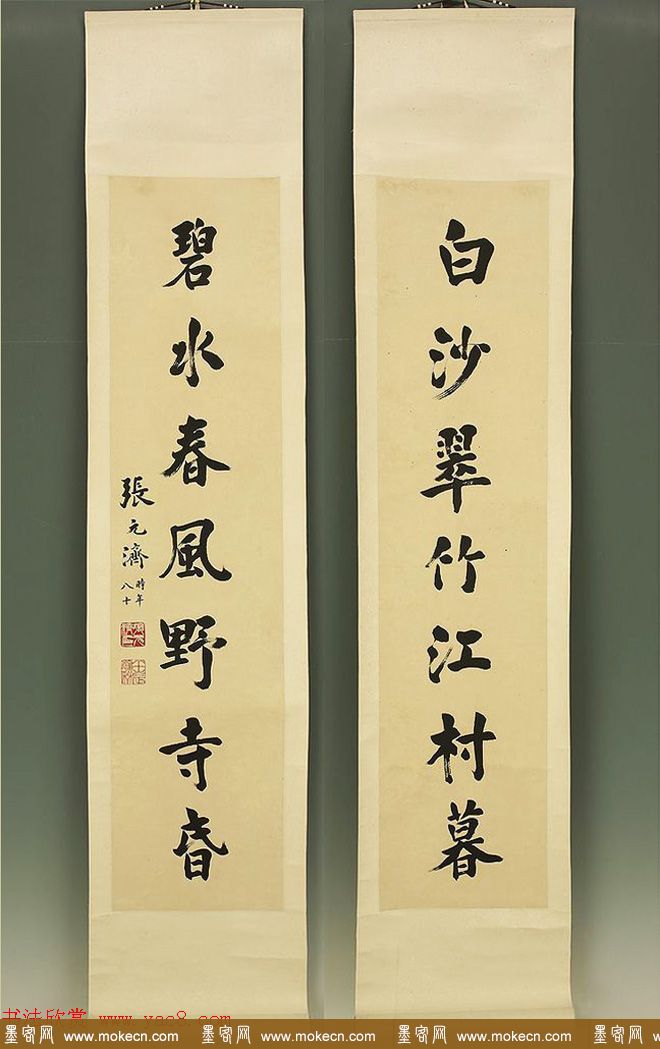 白沙翠竹江村暮
碧水春風野寺昏
張元濟時年
八十
书法欣赏 www.yac8.com
墨客网 www.mokecn.com 墨客网 www.mokecn.com 墨客网 www.mokecn.com 墨客网